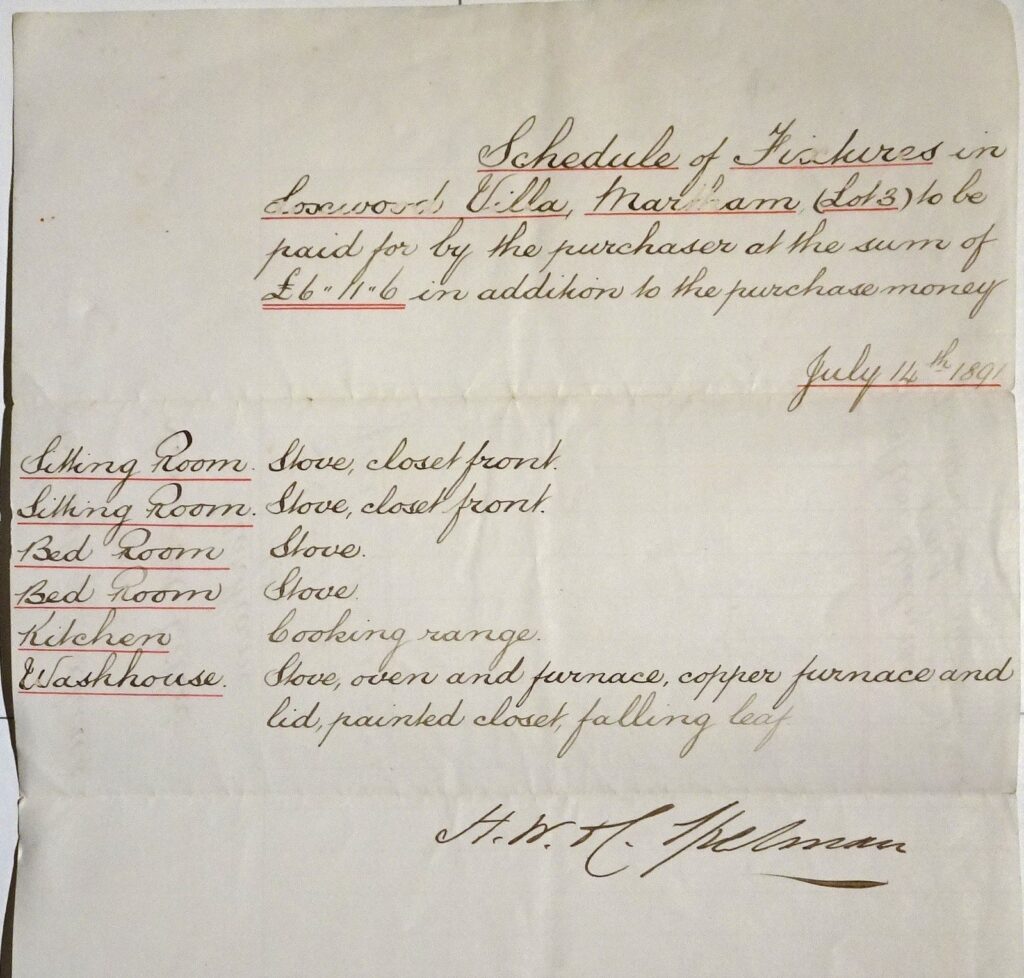 Schedule of Fixtures in
Villa, Martham, (Lot 3) to be
paid for by the purchaser at the sum of
£6-11-6 in addition to the purchase money
July 14th 1891
Sitting Room. Stove, closet front.
Sitting Room. Stove, closet front.
Bed Room Stove.
Bed Room Stove.
Kitchen Cooking range.
Washhouse. Stove, oven and furnace, copper furnace and
lid, painted closet, falling leaf
H. W. & C. Spelman